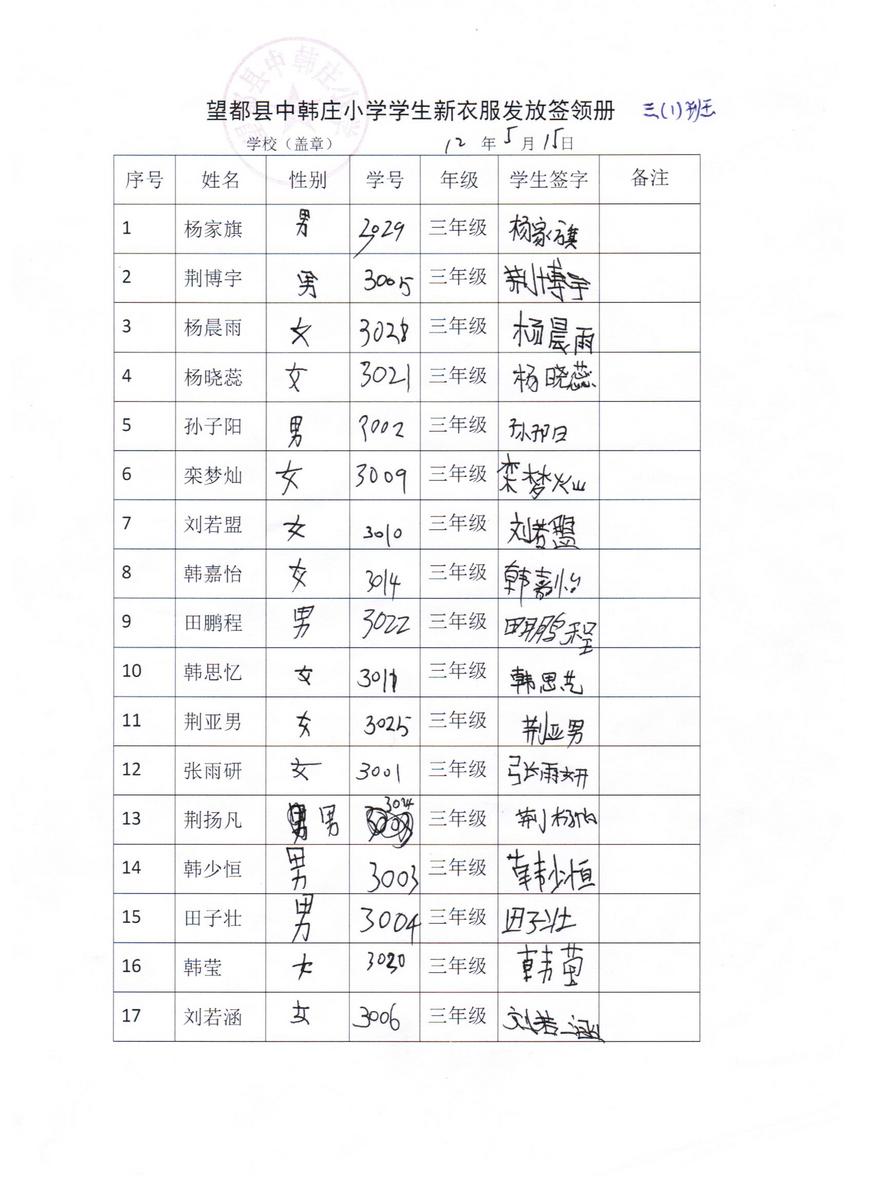 望都县中韩庄小学
望都县中韩庄小学学生新衣服发放签领册 三(1)班
学校（盖章） 12年5月15日
序号 姓名 性别 学号 年级 学生签字 备注
1 杨家旗 男 3029 三年级 杨家旗
2 荆博宇 男 3005 三年级 荆博宇
3 杨晨雨 女 3028 三年级 杨晨雨
4 杨晓蕊 女 3021 三年级 杨晓蕊
5 孙子阳 男 3002 三年级 孙子阳
6 栾梦灿 女 3009 三年级 栾梦灿
7 刘若盟 女 3010 三年级 刘若盟
8 韩嘉怡 女 3014 三年级 韩嘉怡
9 田鹏程 男 3022 三年级 田鹏程
10 韩思忆 女 3011 三年级 韩思
11 荆亚男 女 3025 三年级 荆亚男
12 张雨研 女 3001 三年级 张雨研
13 荆扬凡 男 3024 三年级 荆杨
14 韩少恒 男 3003 三年级 韩少恒
15 田子壮 男 3004 三年级 田子壮
16 韩莹 女 3020 三年级 韩莹
17 刘若涵 女 3006 三年级 刘若涵